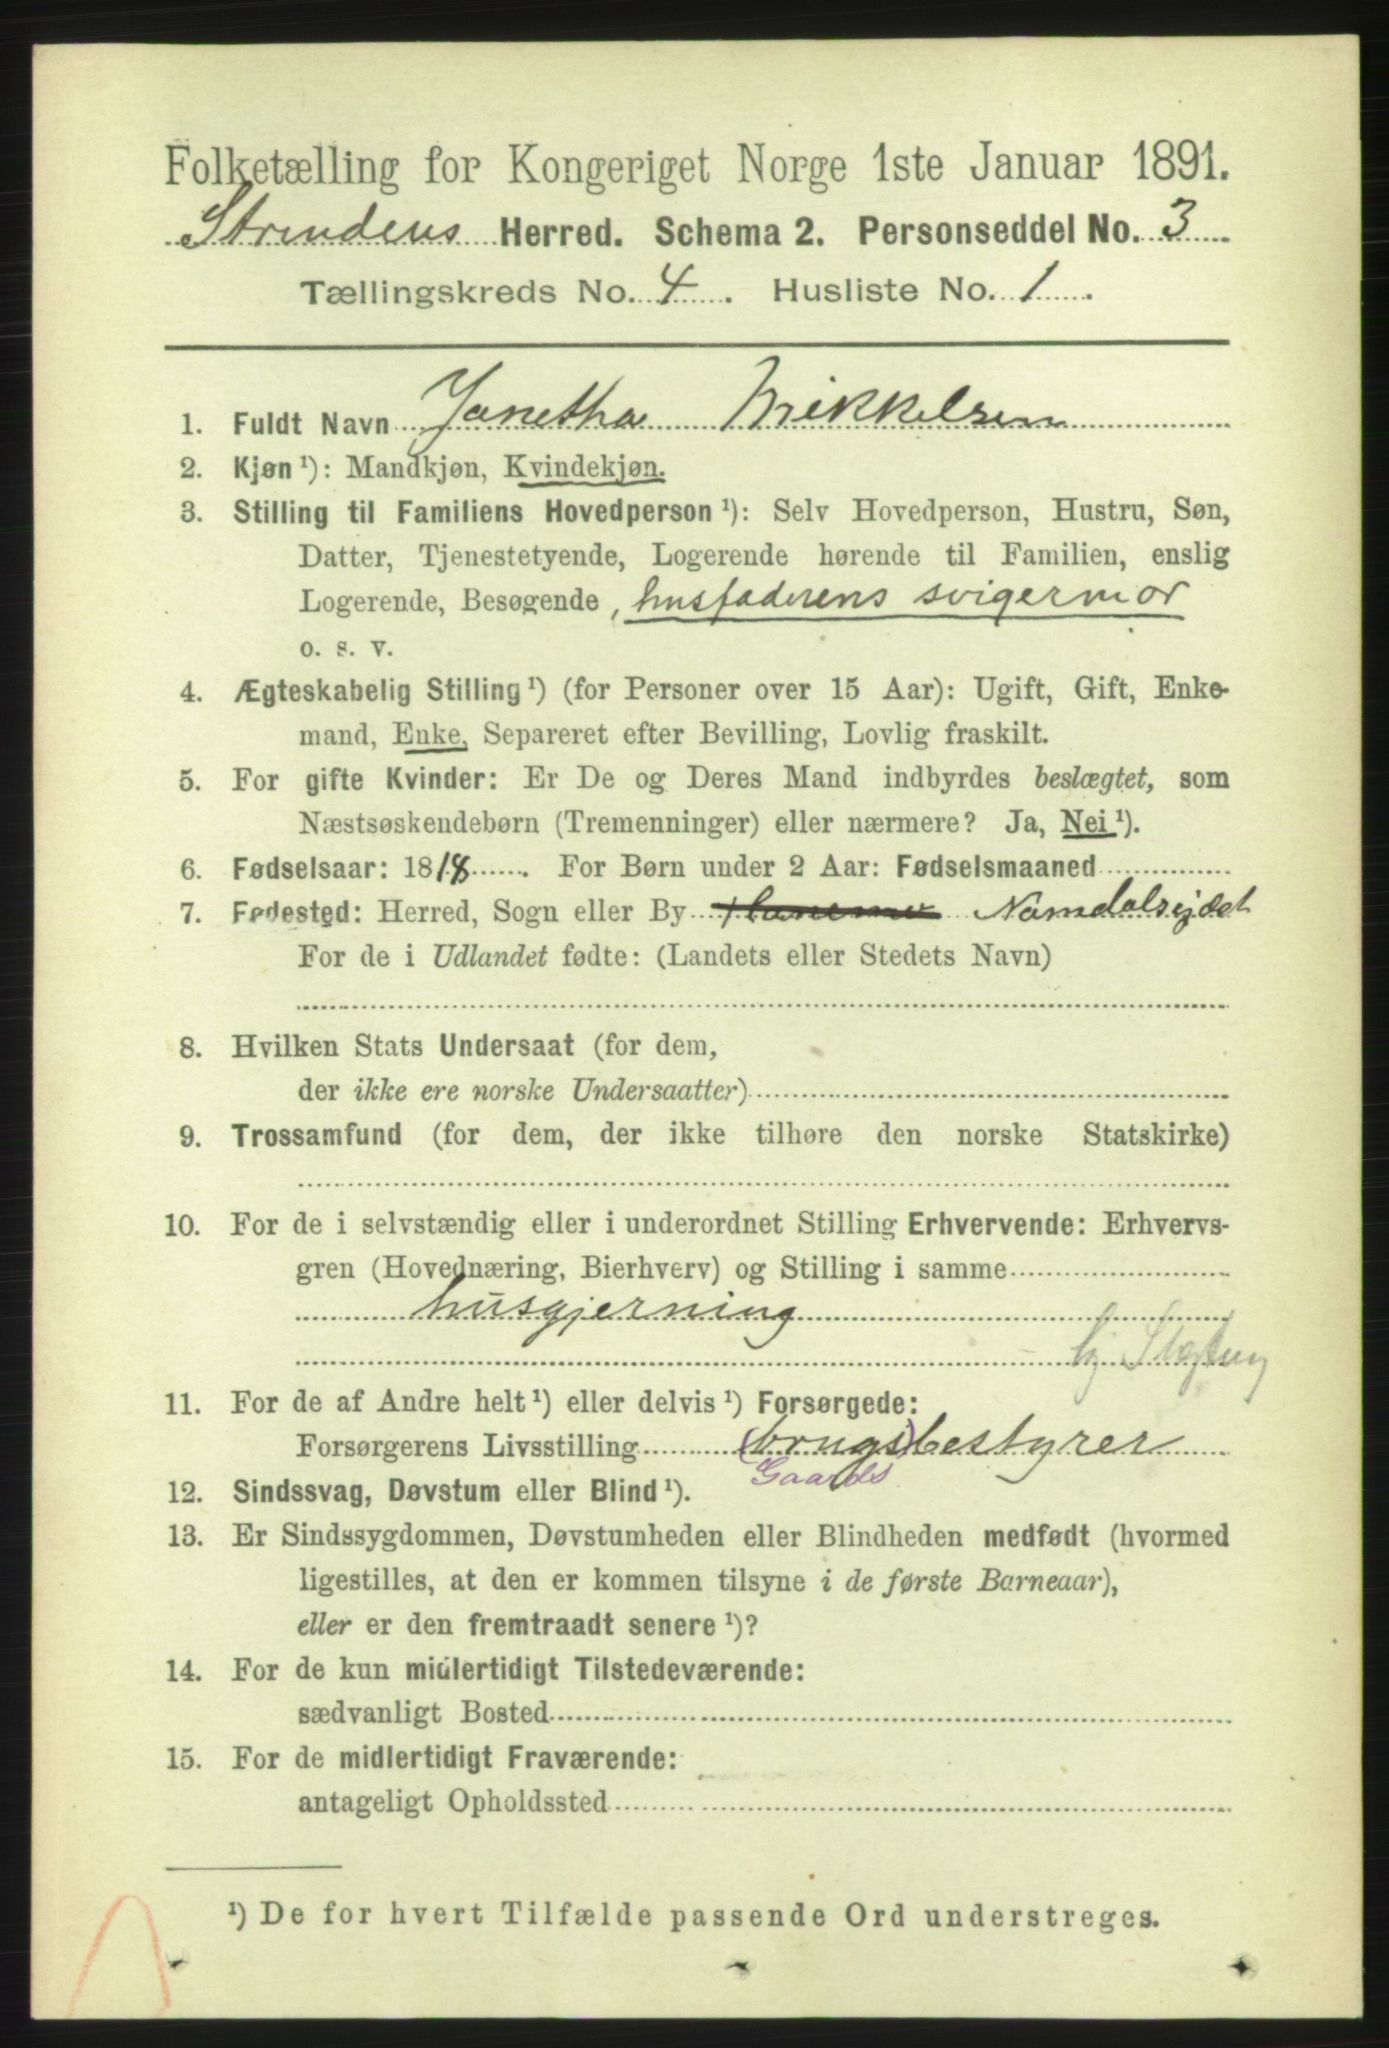 Folketælling for Kongeriget Norge 1ste Januar 1891.
Strindens Herred. Schema 2. Personseddel No. 3
Tællingskreds No. 4. Husliste No. 1.
1. Fuldt Navn Janetha Mikkelsen
2. Kjøn ¹): Mandkjøn, Kvindekjøn.
3. Stilling til Familiens Hovedperson ¹): Selv Hovedperson, Hustru, Søn,
Datter, Tjenestetyende, Logerende hørende til Familien, enslig
Logerende, Besøgende, husfaderens svigermor
o. s. v.
4. Ægteskabelig Stilling ¹) (for Personer over 15 Aar): Ugift, Gift, Enke-
mand, Enke, Separeret efter Bevilling, Lovlig fraskilt.
5. For gifte Kvinder: Er De og Deres Mand indbyrdes beslægtet, som
Næstsøskendebørn (Tremenninger) eller nærmere? Ja, Nei ¹).
6. Fødselsaar: 1818. For Børn under 2 Aar: Fødselsmaaned
7. Fødested: Herred, Sogn eller By Namdalsejdet
For de i Udlandet fødte: (Landets eller Stedets Navn)
8. Hvilken Stats Undersaat (for dem,
der ikke ere norske Undersaatter)
9. Trossamfund (for dem, der ikke tilhøre den norske Statskirke)
10. For de i selvstændig eller i underordnet Stilling Erhvervende: Erhvervs-
gren (Hovednæring, Bierhverv) og Stilling i samme
husgjerning
11. For de af Andre helt ¹) eller delvis ¹) Forsørgede:
Forsørgerens Livsstilling (brugs)bestyrer
Gaards
12. Sindssvag, Døvstum eller Blind ¹).
13. Er Sindssygdommen, Døvstumheden eller Blindheden medfødt (hvormed
ligestilles, at den er kommen tilsyne i de første Barneaar),
eller er den fremtraadt senere ¹)?
14. For de kun midlertidigt Tilstedeværende:
sædvanligt Bosted
15. For de midlertidigt Fraværende:
antageligt Opholdssted
¹) De for hvert Tilfælde passende Ord understreges.